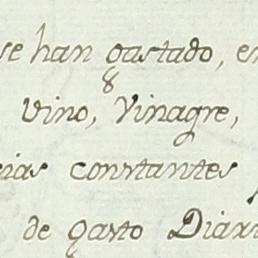 se han gastado, en
vino, Vinagre,
cias constantes
de gasto Diari